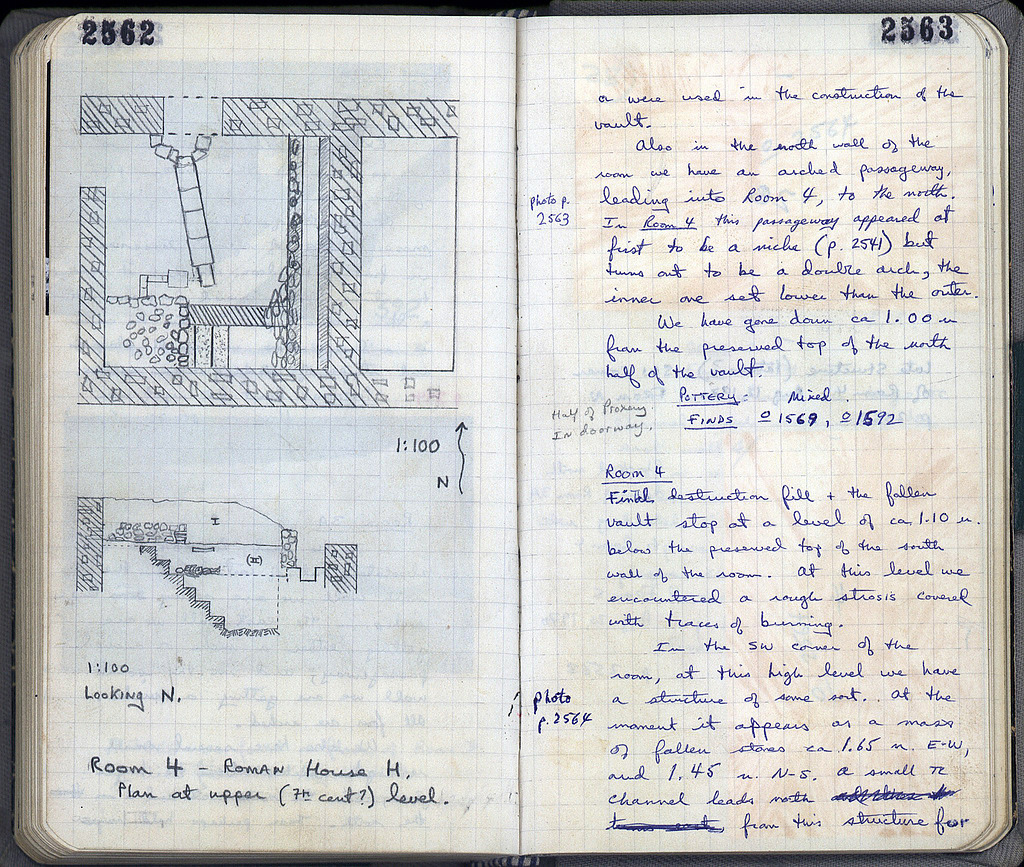 2562
1:100
N
I
(II)
1:100
Looking N.
Room 4 - Roman House H.
Plan at upper (7th cent?) level.
2563
or were used in the construction of the
vault.
Also in the north wall of the
room we have an arched passageway,
photo p. 2563
leading into Room 4, to the north.
In Room 4 this passageway appeared at
first to be a niche (p. 2541) but
turns out to be a double arch, the
inner one set lower than the outer.
We have gone down ca 1.00 m
from the preserved top of the north
half of the vault.
POTTERY: Mixed
Half of
In doorway.
FINDS O 1569, O 1592
Room 4
destruction fill + the fallen
vault stop at a level of ca 1.10 m.
below the preserved top of the south
wall of the room. At this level we
encountered a rough strosis covered
with traces of burning.
In the SW corner of the
room, at this high level we have
photo p. 2564
a structure of some sort. At the
moment it appears as a mass
of fallen stones ca 1.65 m. E-W,
and 1.45 m. N-S. A small
channel leads north
from this structure for